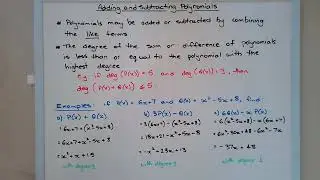 Adding and Subtracting Polynomials
* Polynomials may be added or subtracted by combining
the like terms.
* The degree of the sum or difference of polynomials
is less than or equal to the polynomial with the
highest degree
Eg if deg (P(x)) = 5 and deg (Q(x)) = 3, then
deg (P(x) + Q(x)) ≤ 5
Examples: If P(x) = 6x+7 and Q(x) = x²-5x+8, find:
a) P(x) + Q(x)
= 6x+7+(x²-5x+8)
= 6x+7+x²-5x+8
= x²+x+15
with degree 2
b) 3P(x) - Q(x)
= 3(6x+7)-(x²-5x+8)
= 18x+21-x²+5x-8
= -x²+23x+13
with degree 2
= 6(x²-5x+8)-x(6x+7)
= 6x²-30x+48-6x²-7x
= -37x+48
with degree 1